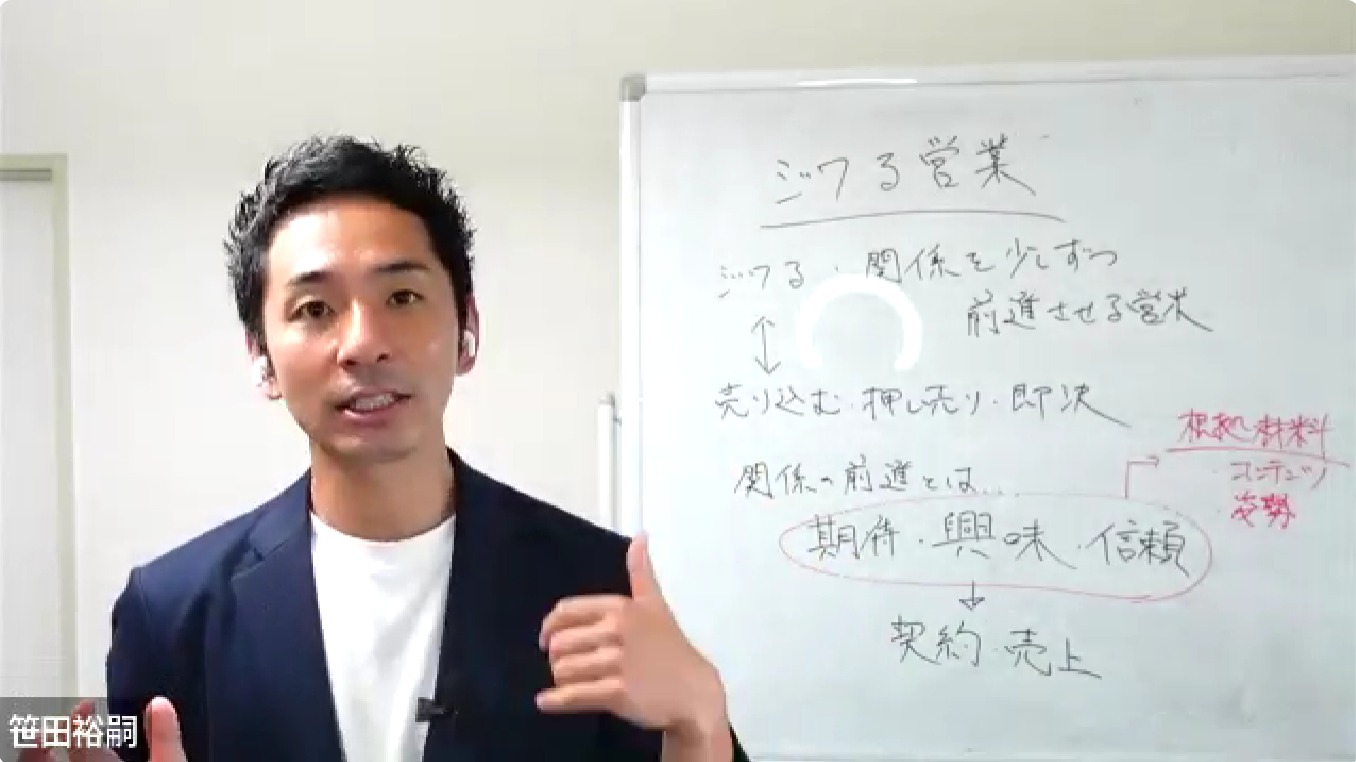 ジワる営業
ジワる・関係を少しずつ
前進させる営業
↕
売り込む・押し売り・即決
根拠・材料
コンテンツ
姿勢
関係の前進とは…
期待・興味・信頼
↓
契約・売上
笹田裕嗣